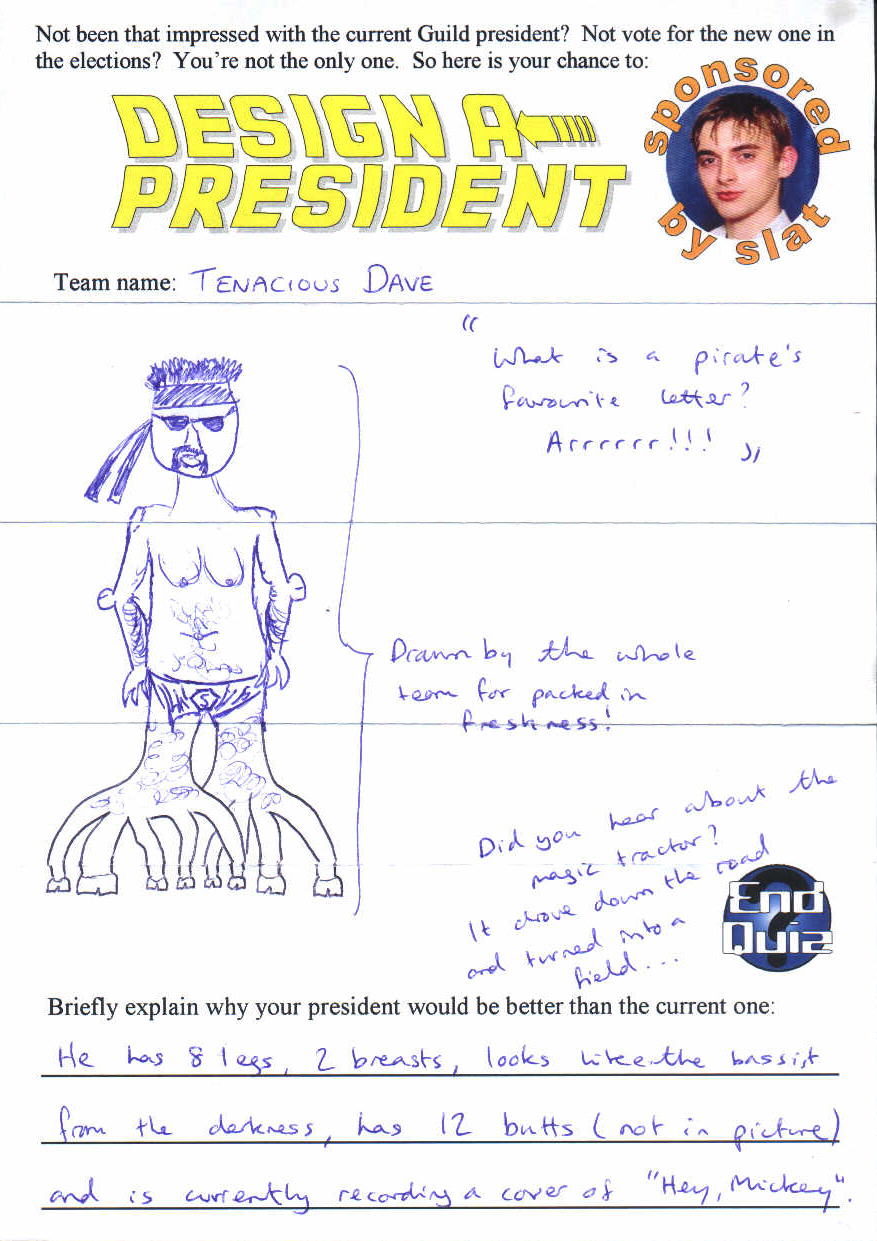 Not been that impressed with the current Guild president? Not vote for the new one in
the elections? You're not the only one. So here is your chance to:
DESIGN A
PRESIDENT
sponsored
by slat
Team name: TENACIOUS DAVE
"
What is a pirate's
favourite letter?
Arrrrrr!!!
"
S
Drawn by the whole
team for packed in
freshness!
Did you hear about the
magic tractor?
It drove down the road
and turned into a
field...
End
Quiz
Briefly explain why your president would be better than the current one:
He has 8 legs, 2 breasts, looks like the bassist
from the darkness, has 12 butts (not in picture)
and is currently recording a cover of "Hey, Mickey".